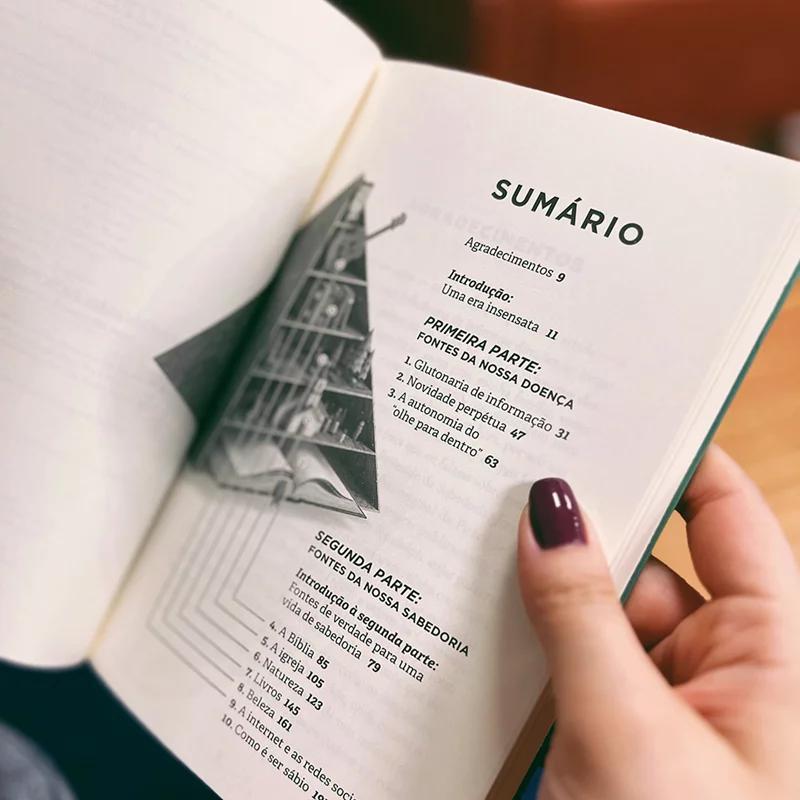 SUMÁRIO
Agradecimentos 9
Introdução:
Uma era insensata 11
PRIMEIRA PARTE:
FONTES DA NOSSA DOENÇA
1. Glutonaria de informação 31
2. Novidade perpétua 47
3. A autonomia do
"olhe para dentro" 63
SEGUNDA PARTE:
FONTES DA NOSSA SABEDORIA
Introdução à segunda parte:
Fontes de verdade para uma
vida de sabedoria 79
4. A Bíblia 85
5. A igreja 105
6. Natureza 123
7. Livros 145
8. Beleza 161
9. A internet e as redes
10. Como é ser sábio